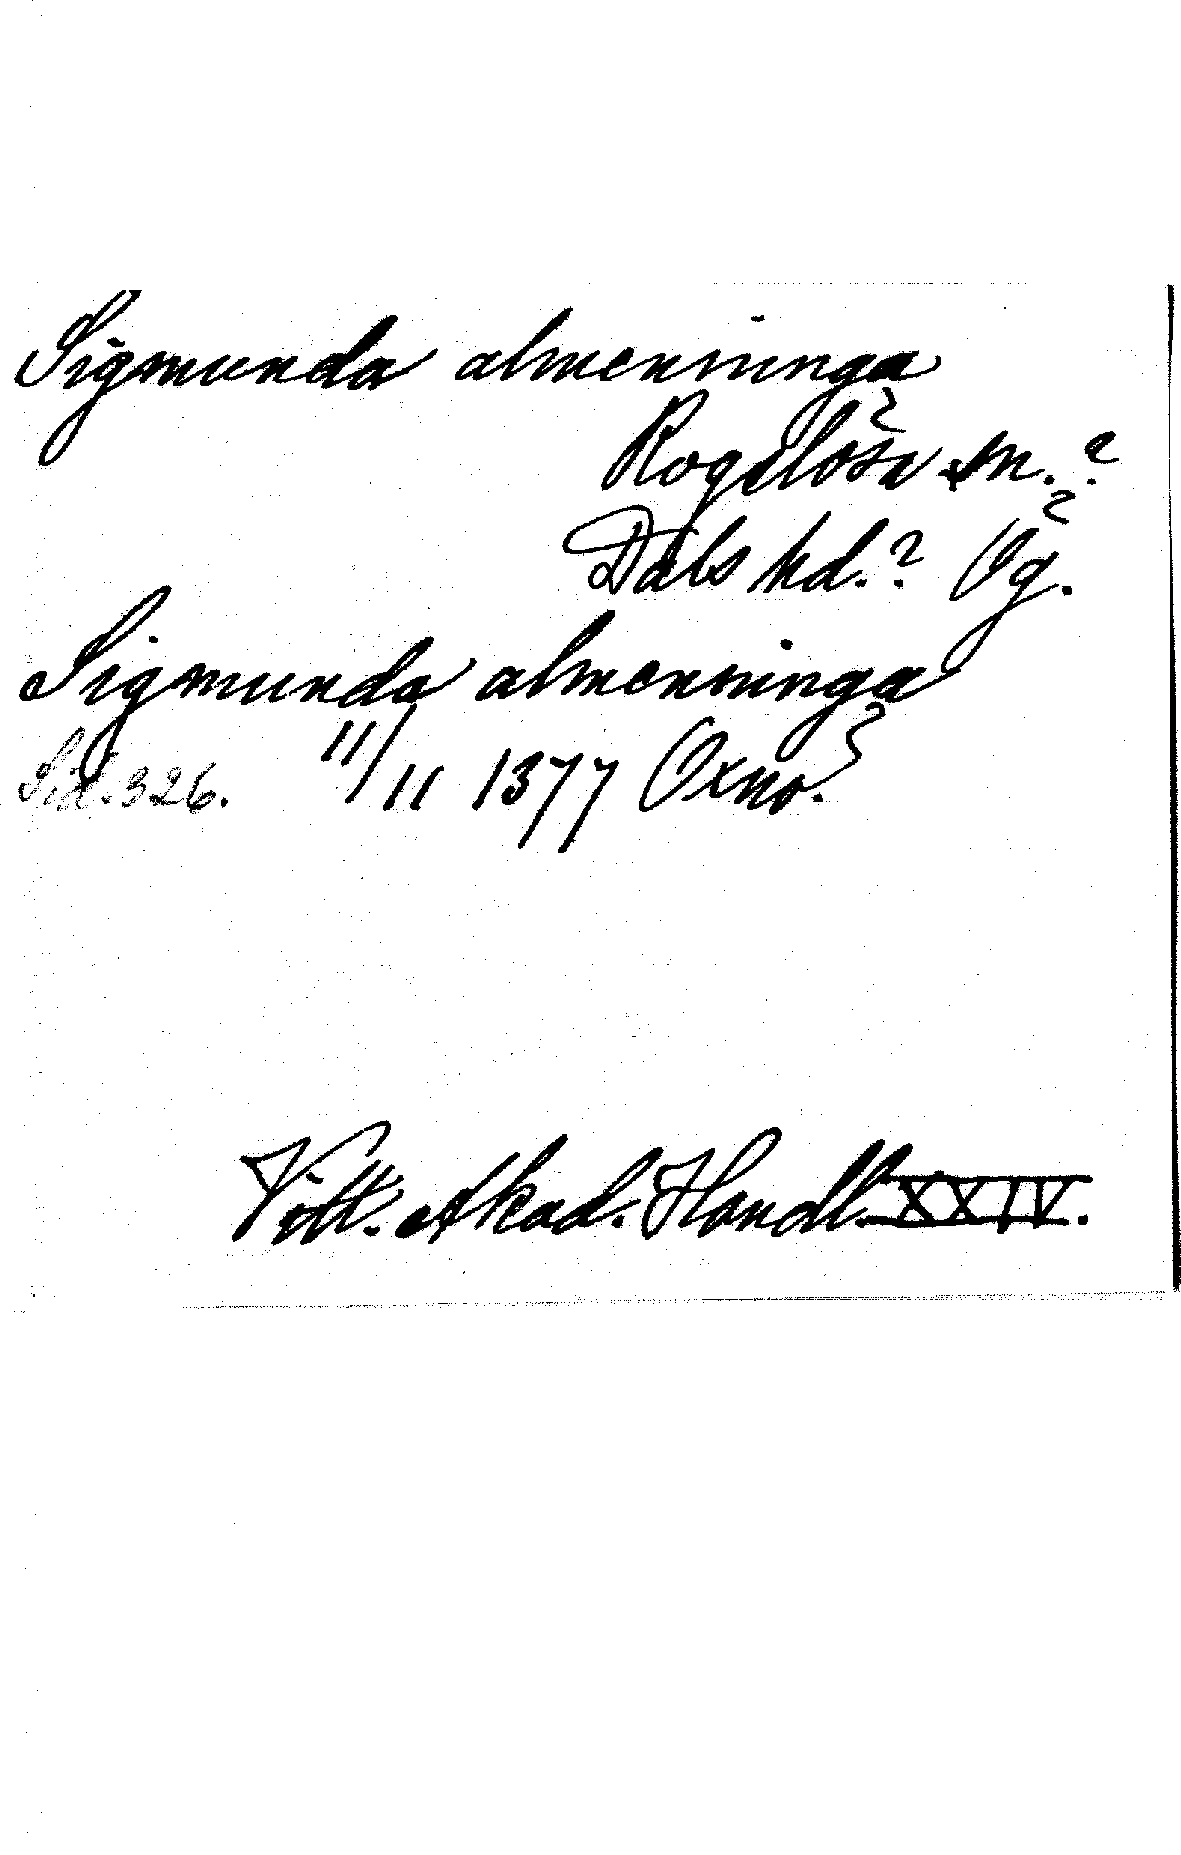 Sigmunda almenninga
Rogslösa sn.?
Dals hd.? Ög.
Sigmunda almenninga
Sid. 326. 11/11 1377 Oxno.
Vitt. Akad. Handl. XXIV.